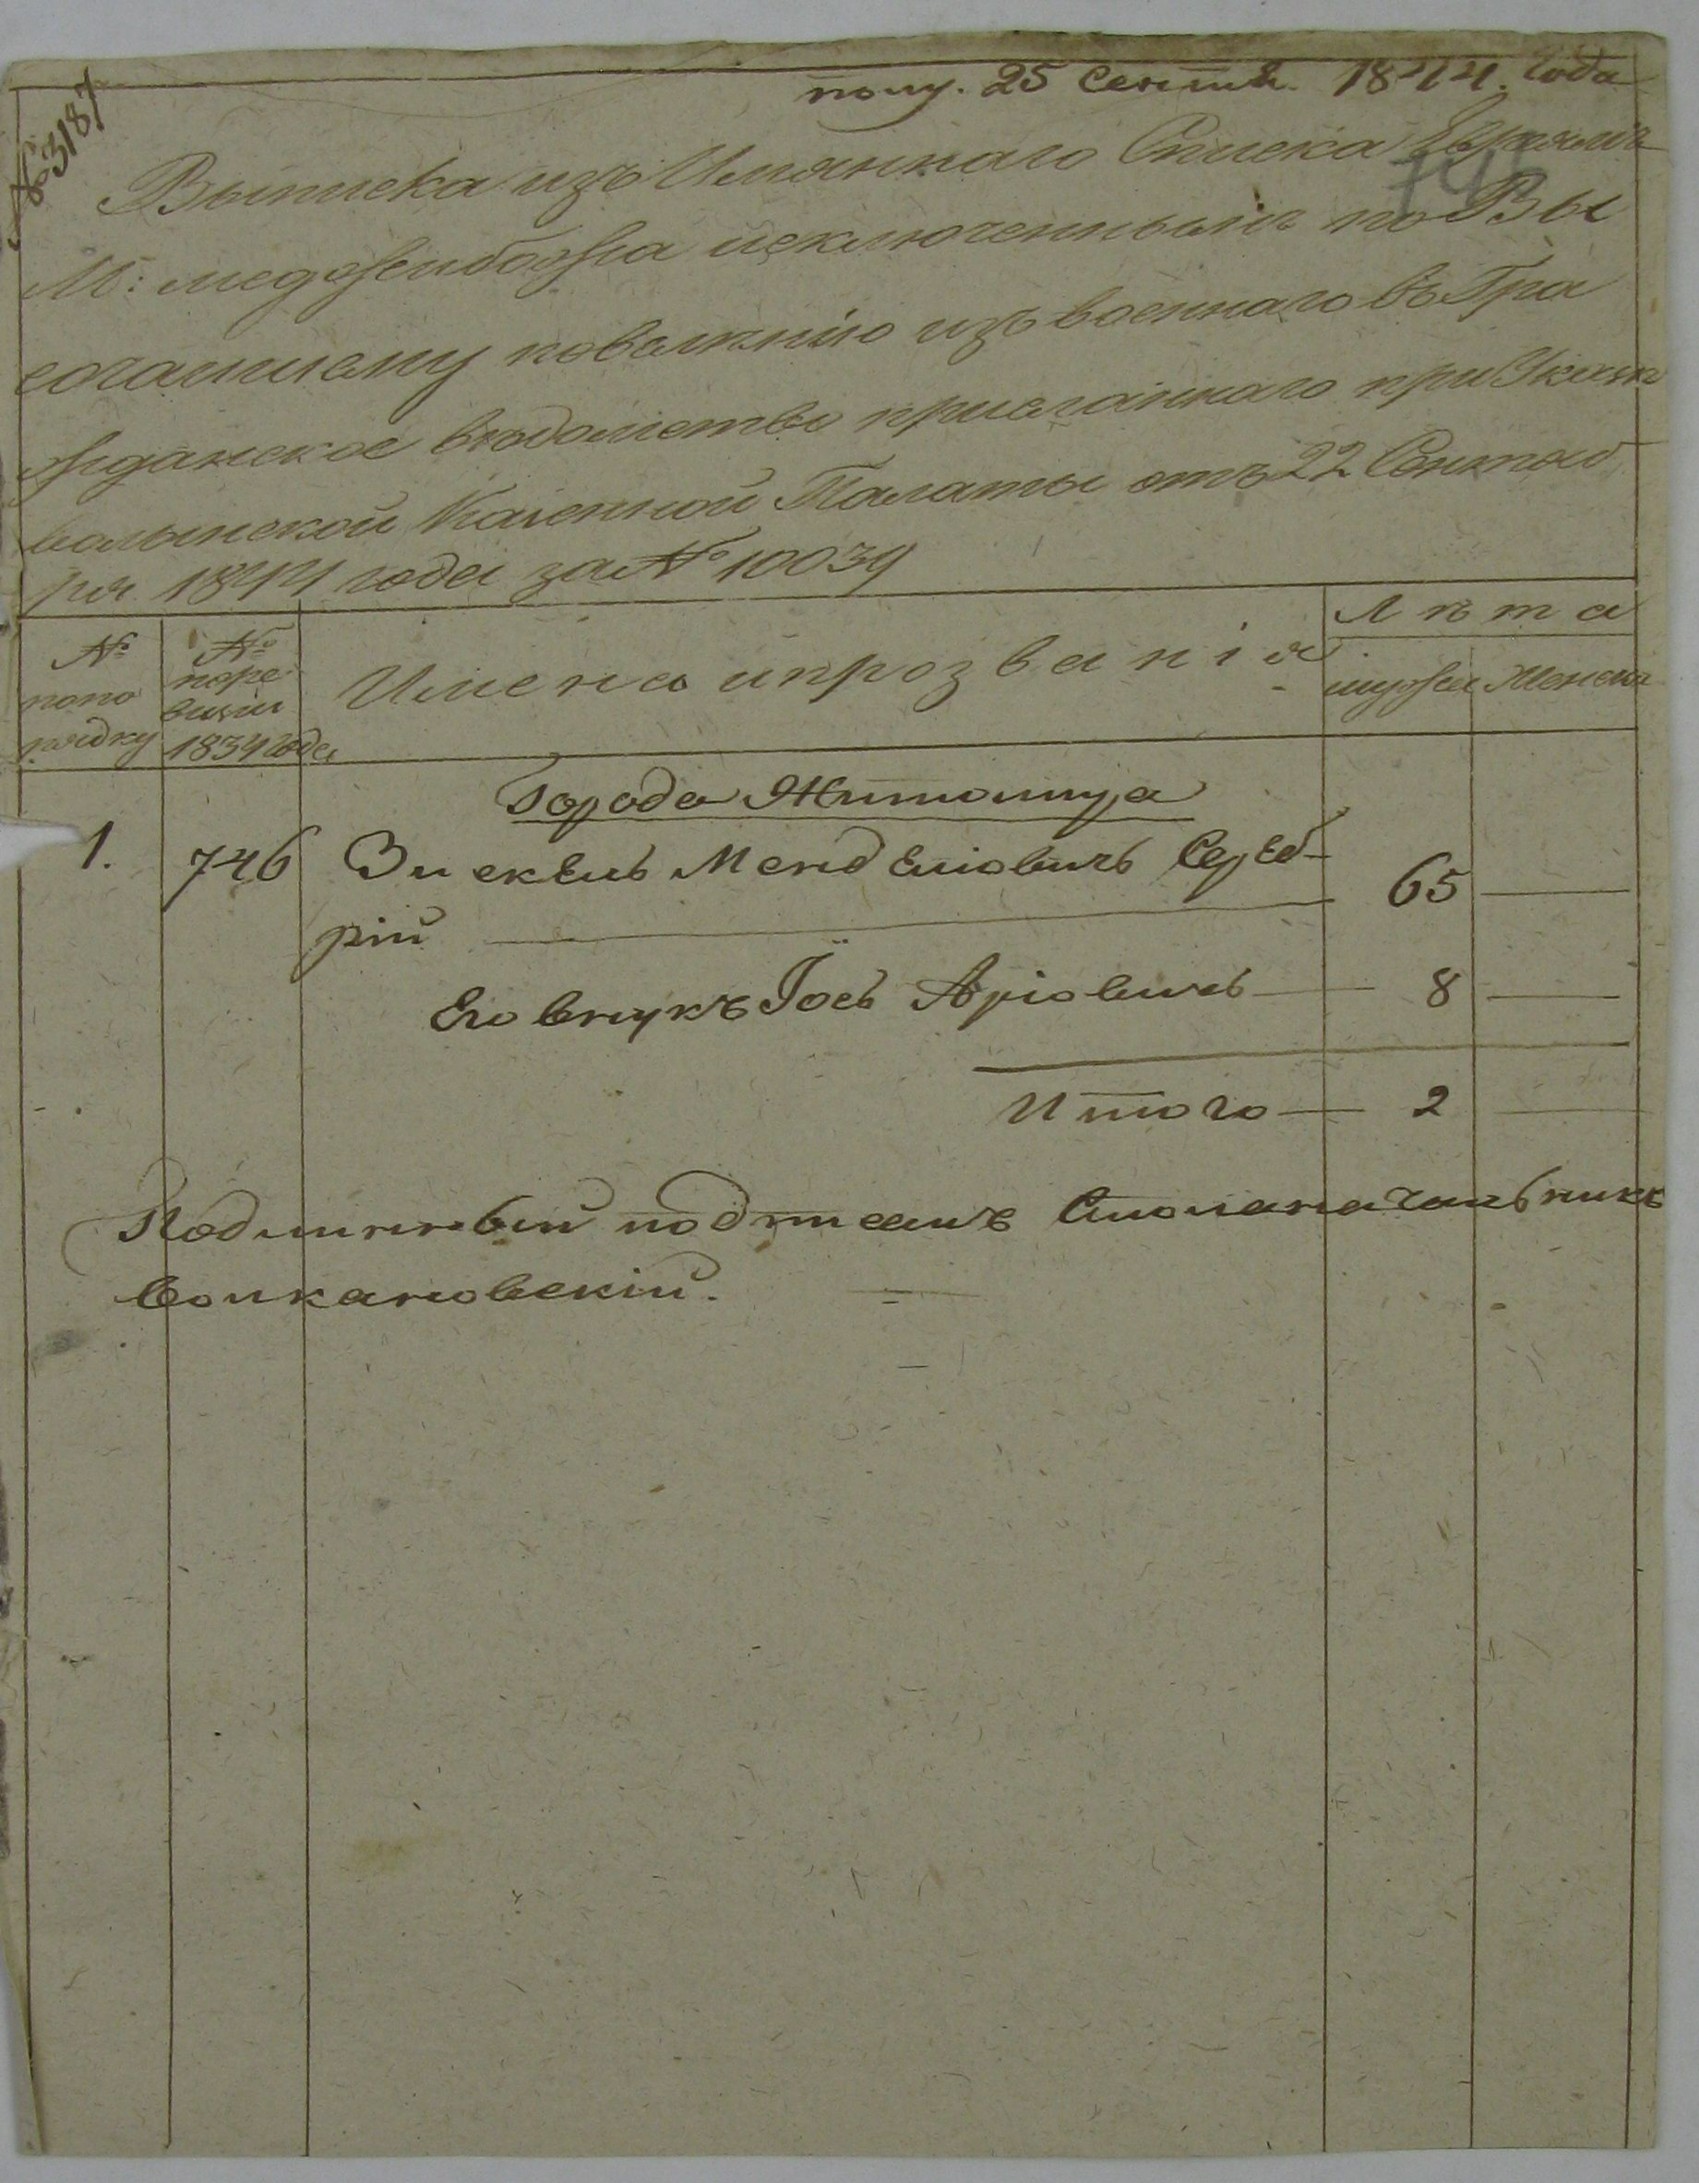 № 3187
полу. 25 Сентяб. 1844. года
Выписка изъ Имяннаго Списка Евреямъ
М: меджибожа исключеннымъ по Вы
сочайшему повелѣнію изъ военнаго въ Гра
жданское вѣдомство присланнаго при Указѣ
волынской Казенной Палаты отъ 22 Сентяб
ря 1844 года за № 10039
№ попо рядку
№ поре визіи 1834 года
Имена и прозванія
Лѣта
мужеска
Женска
Города Житомира
1. 746 Зисекель Менделіовичъ Сереб-
рій 65
Его внукъ Іось Аріовичъ 8
Итого 2
Подлинный подписалъ Столоначальникъ